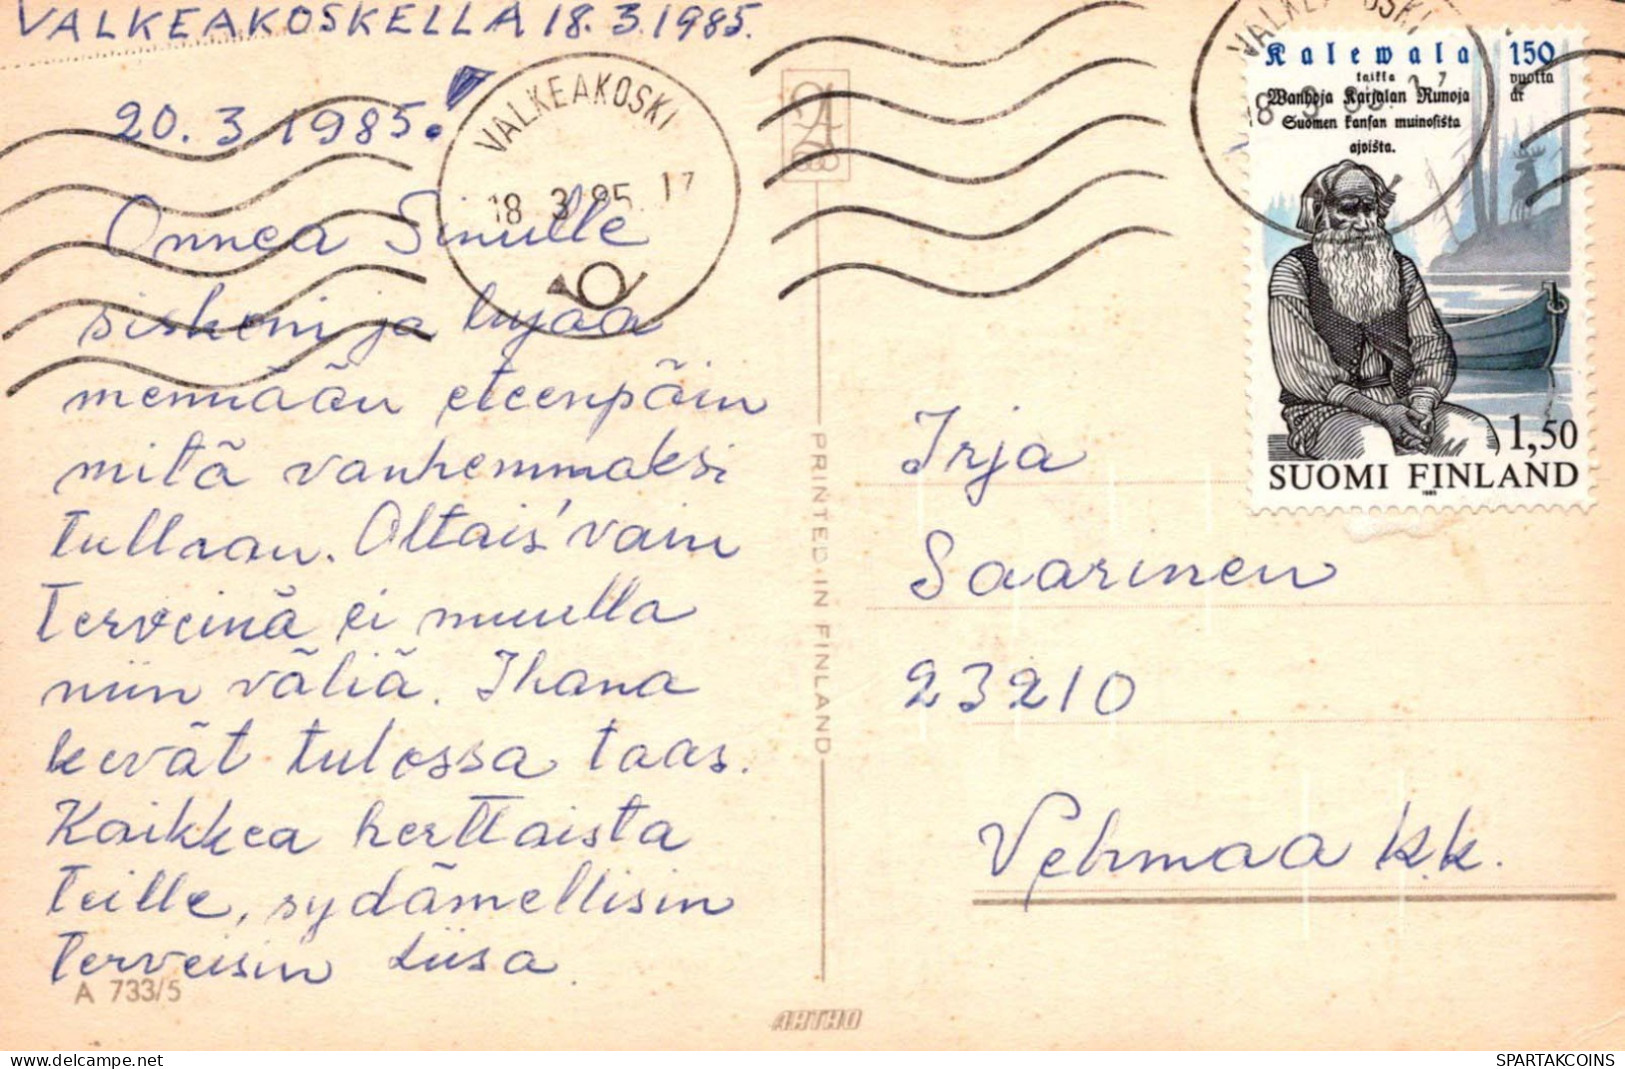 VALKEAKOSKELLA 18.3.1985.
20.3.1985.
VALKEAKOSKI
18 3 85. 17
Onnea Sinulle
siskoni ja lujaa
mennään eteenpäin
mitä vanhemmaksi
tullaan. Oltais' vain
Terveinä ei muulla
niin väliä. Ihana
kevät tulossa taas.
Kaikkea herttaista
Teille, sydämellisin
terveisin Liisa
A 733/5
PRINTED IN FINLAND
ARTKO
VALKEAKOSKI
Kalewala
taikka
Wanhoja Karjalan Runoja
Suomen kansan muinosista
ajoista.
150
vuotta
år
1,50
SUOMI FINLAND
1985
Irja
Saarinen
23210
Vehmaa kk.
www.delcampe.net
SPARTAKCOINS